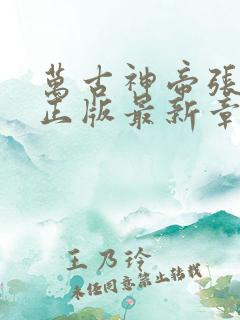 萬古神帝張
正版最新章
王乃玲
未經同意禁止轉載